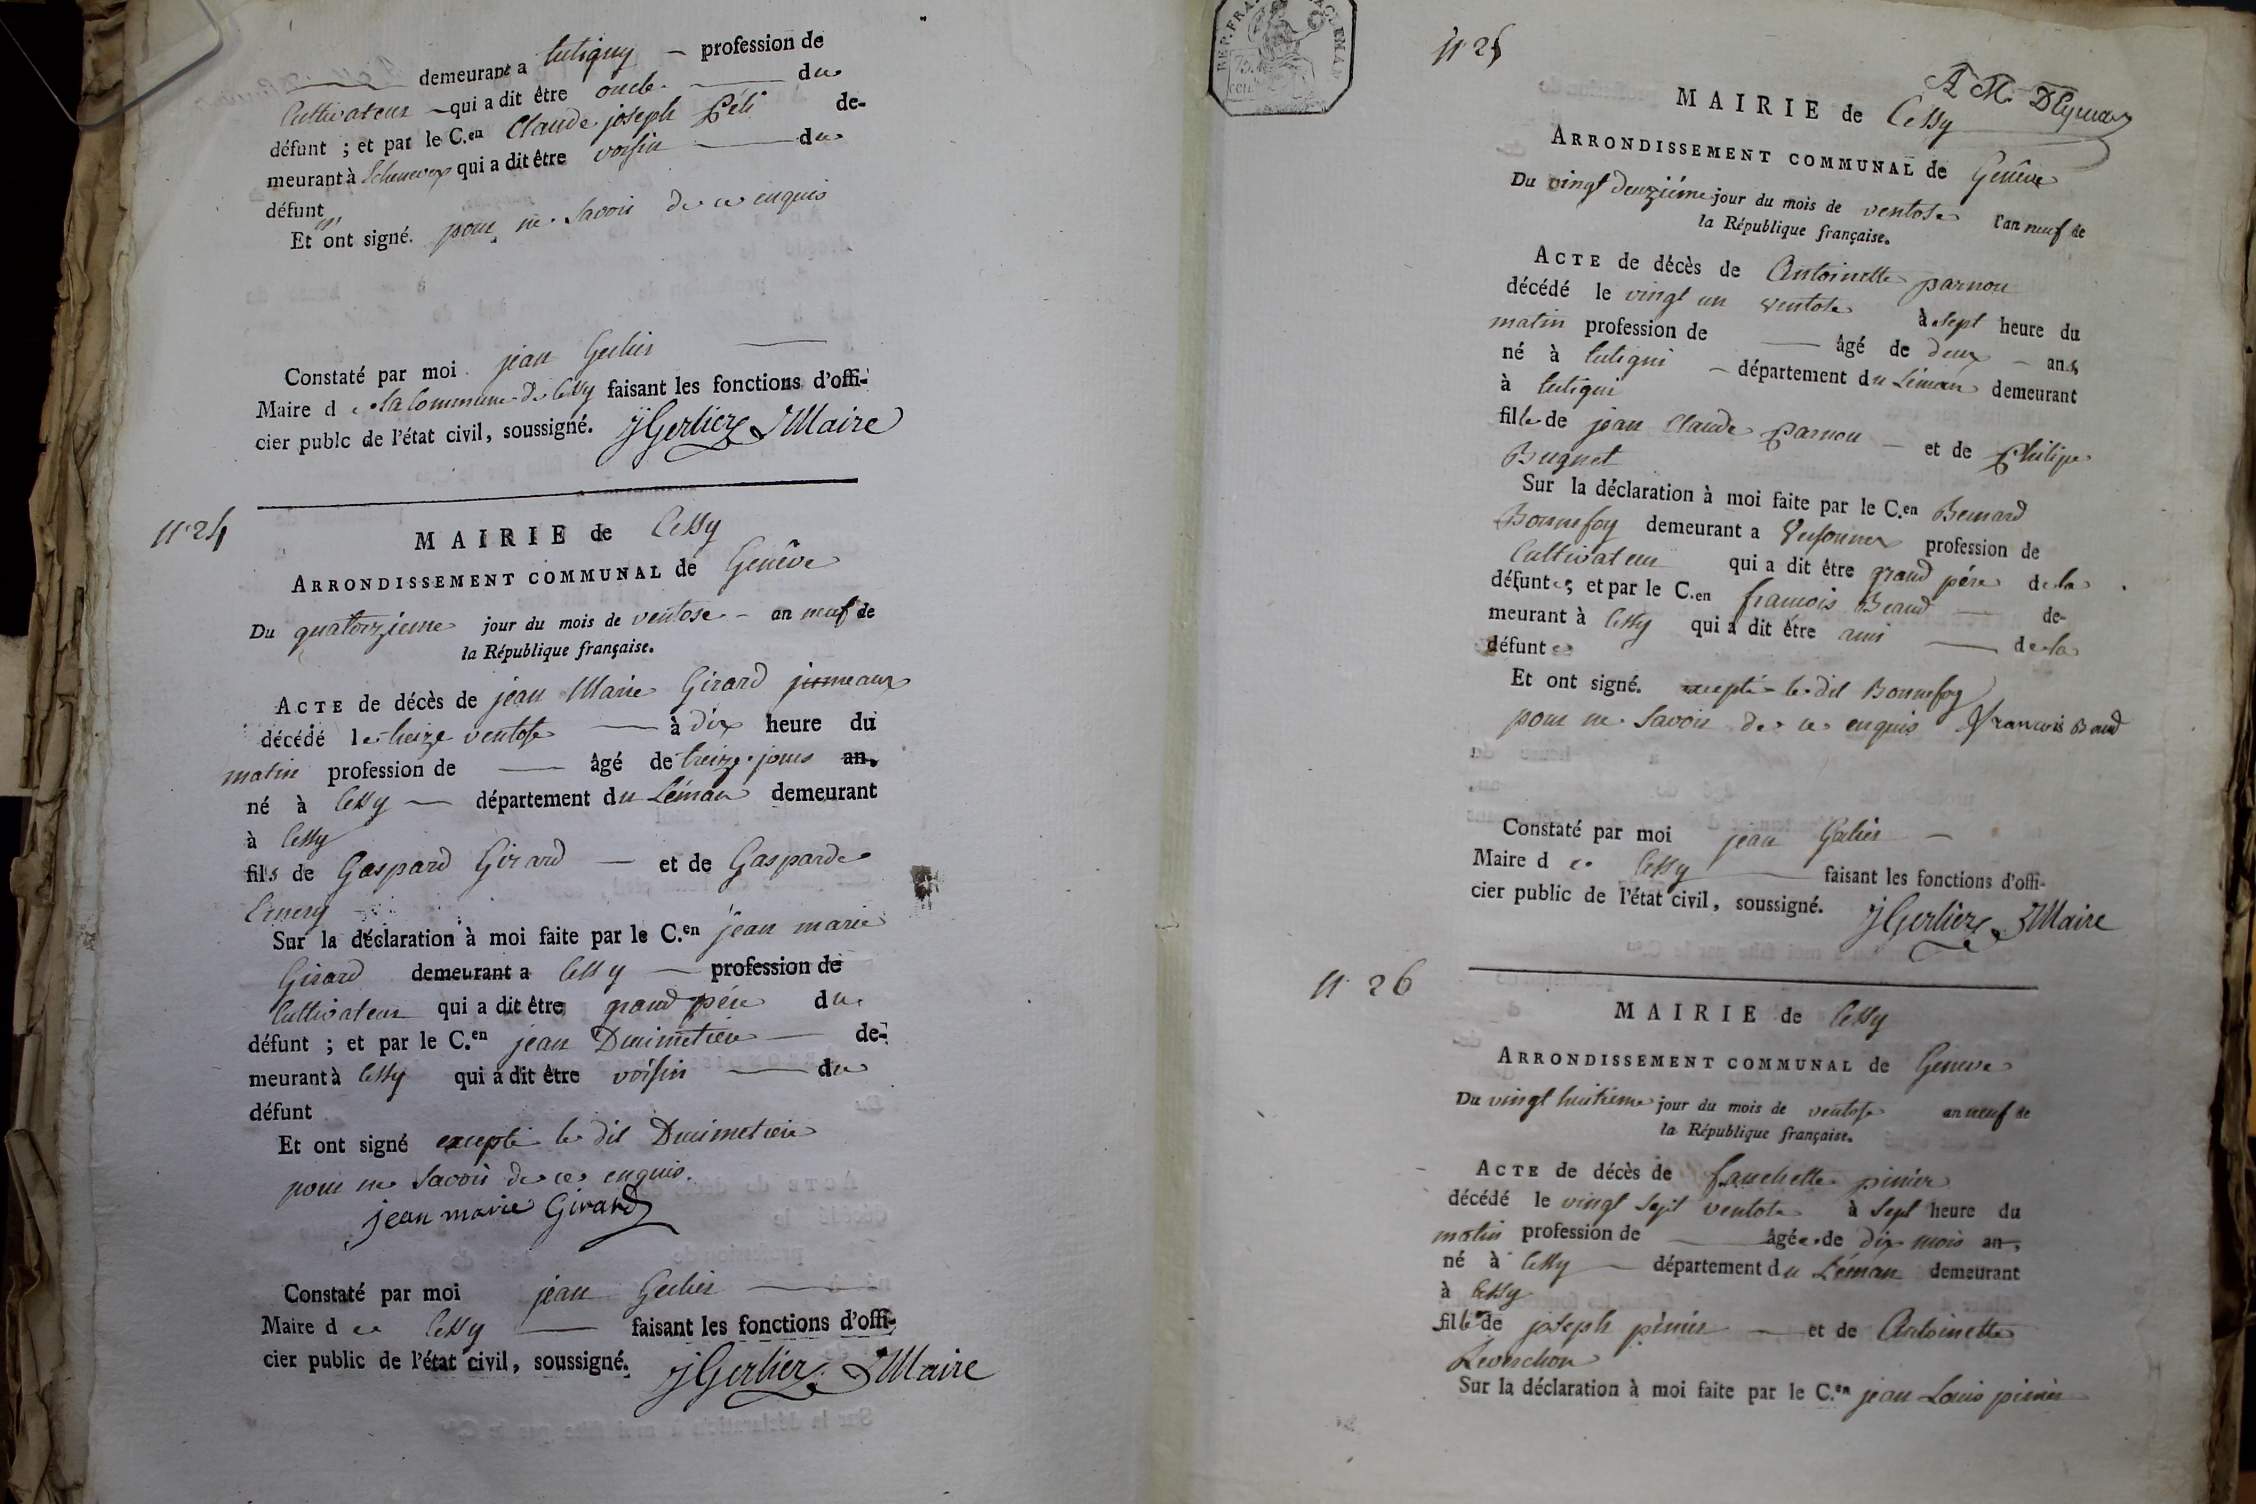 demeurant a tutigny — profession de
Cultivateur — qui a dit être oncle — du
défunt ; et par le C.en Claude joseph de-
meurant à qui a dit être voisin — du
défunt
Et ont signé. pour ne savoir de ce enquis
Constaté par moi jean Gerlier —
Maire de la Commune de Cessy faisant les fonctions d'offi-
cier publc de l'état civil, soussigné. JGerlier Maire
N° 24
MAIRIE de Cessy
ARRONDISSEMENT COMMUNAL de Genève
Du quatorzieme jour du mois de ventose - an neuf de
la République française.
ACTE de décès de jean Marie Girard jumeaux
décédé le treize ventose — à dix heure du
matin profession de — âgé de treize jours an.
né à Cessy — département du Léman demeurant
à Cessy
fils de Gaspard Girard — et de Gasparde
Emery
Sur la déclaration à moi faite par le C.en jean marie
Girard demeurant a Cessy — profession de
Cultivateur qui a dit être grand pére du
défunt ; et par le C.en jean Duimetiere — de-
meurant à Cessy qui a dit être voisin — du
défunt
Et ont signé excepté le dit Duimetiere
pour ne savoir de ce enquis.
jean marie Girard
Constaté par moi jean Gerlier —
Maire de Cessy — faisant les fonctions d'offi-
cier public de l'état civil, soussigné. JGerlier Maire
REP. FRA
N° 25
A M.
MAIRIE de Cessy
ARRONDISSEMENT COMMUNAL de Genève
Du vingt deuziéme jour du mois de ventose l'an neuf de
la République française.
ACTE de décès de Antoinette parnou
décédé le vingt un ventose à sept heure du
matin profession de — âgé de deux - ans
né à tutigni — département du Léman demeurant
à tutigni
fille de jean Claude parnou — et de Philipe
Bugnet
Sur la déclaration à moi faite par le C.en Bernard
Bonnefoy demeurant a Vesonnex profession de
Cultivateur qui a dit être grand pére de la
défunte ; et par le C.en francois Beaud — de-
meurant à Cessy qui a dit être ami — de la
défunte
Et ont signé. excepté le dit Bonnefoy
pour ne savoir de ce enquis francois Beaud
Constaté par moi jean Gerlier —
Maire de Cessy — faisant les fonctions d'offi-
cier public de l'état civil, soussigné. JGerlier Maire
N° 26
MAIRIE de Cessy
ARRONDISSEMENT COMMUNAL de Geneve
Du vingt huitieme jour du mois de ventose an neuf de
la République française.
ACTE de décès de fanchette pinier
décédé le vingt sept ventose à sept heure du
matin profession de — âgée de dix mois an,
né à Cessy — département du Léman demeurant
à Cessy
fille de joseph pinier — et de Antoinette
Leverchon
Sur la déclaration à moi faite par le C.en jean Louis pinier